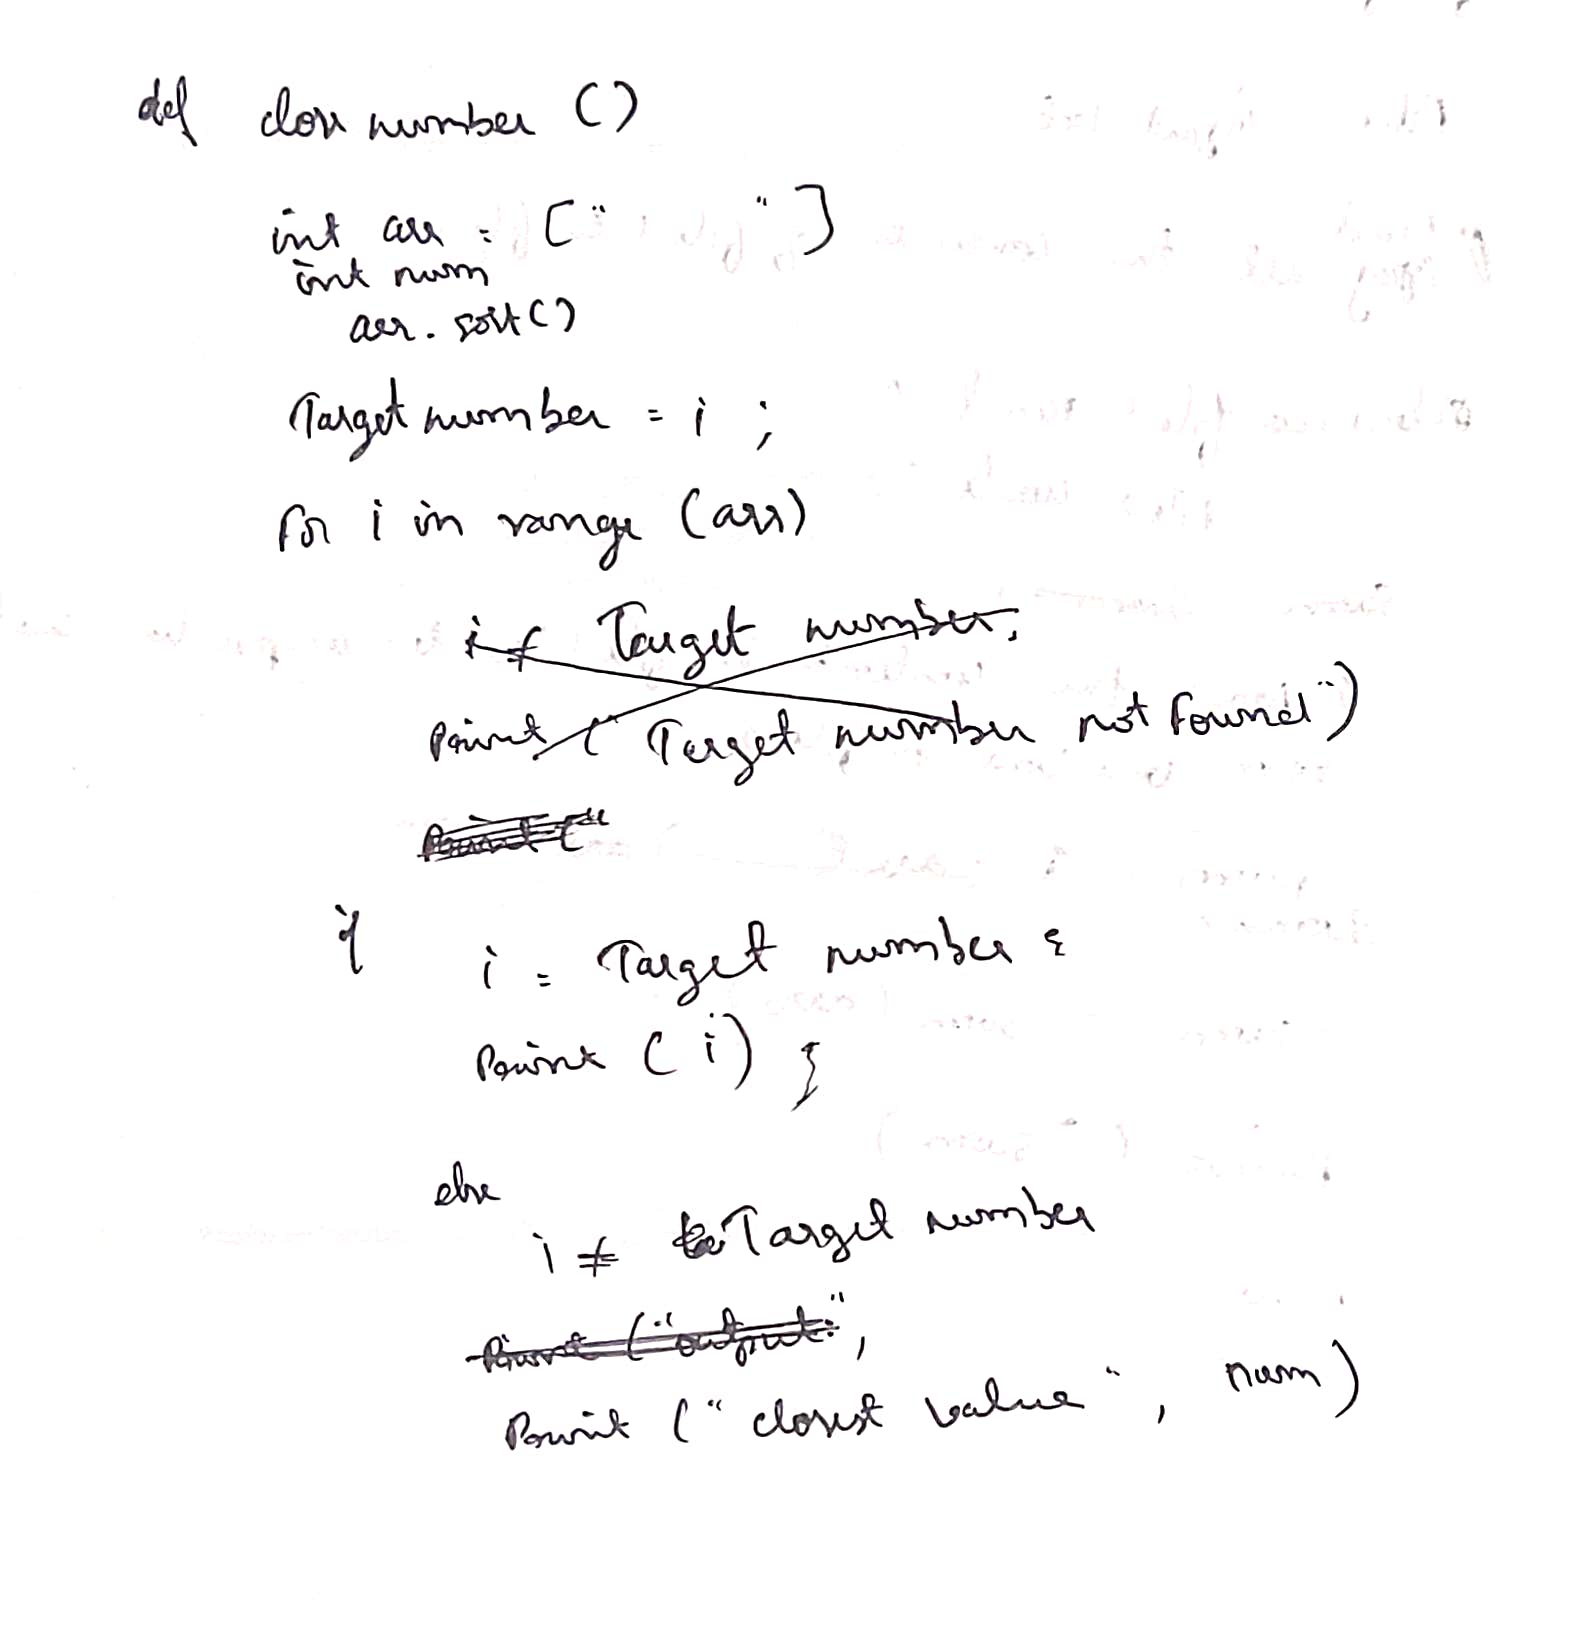 def close number ()
int arr = ["          "]
int num
arr.sort()
Target number = i ;
for i in range (arr)
if Target number:
Print (" Target number not found")
Print ("
if i = Target number {
Print ( i ) }
else
i ≠ Target number
Print ("output:",
Print (" closest value ", num)